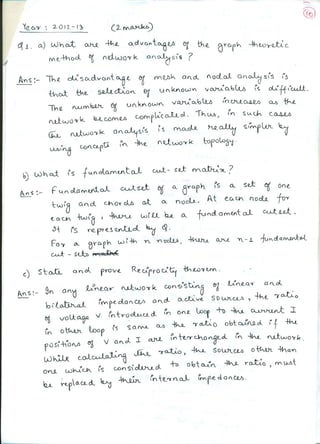 Year : 2012-13 (2 marks)
Q1. a) What are the advantages of the graph theoretic
method of network analysis ?
Ans:- The disadvantage of mesh and nodal analysis is
that the selection of unknown variables is difficult.
The number of unknown variables increases as the
network becomes complicated. Thus, in such cases
the network analysis is made really simpler by
using concepts in the network topology
b) What is fundamental cut-set matrix?
Ans:- Fundamental cutset of a graph is a set of one
twig and chords at a node. At each node for
each twig, there will be a fundamental cutset.
It is represented by Q.
For a graph with n nodes, there are n-1 fundamental
cut-sets
c) State and prove Reciprocity theorem.
Ans:- In any linear network consisting of linear and
bilateral impedances and active sources, the ratio
of voltage V introduced in one loop to the current I
in other loop is same as the ratio obtained if the
positions of V and I are interchanged in the network.
While calculating the ratio, the sources other than
one which is considered to obtain the ratio, must
be replaced by their internal impedances.